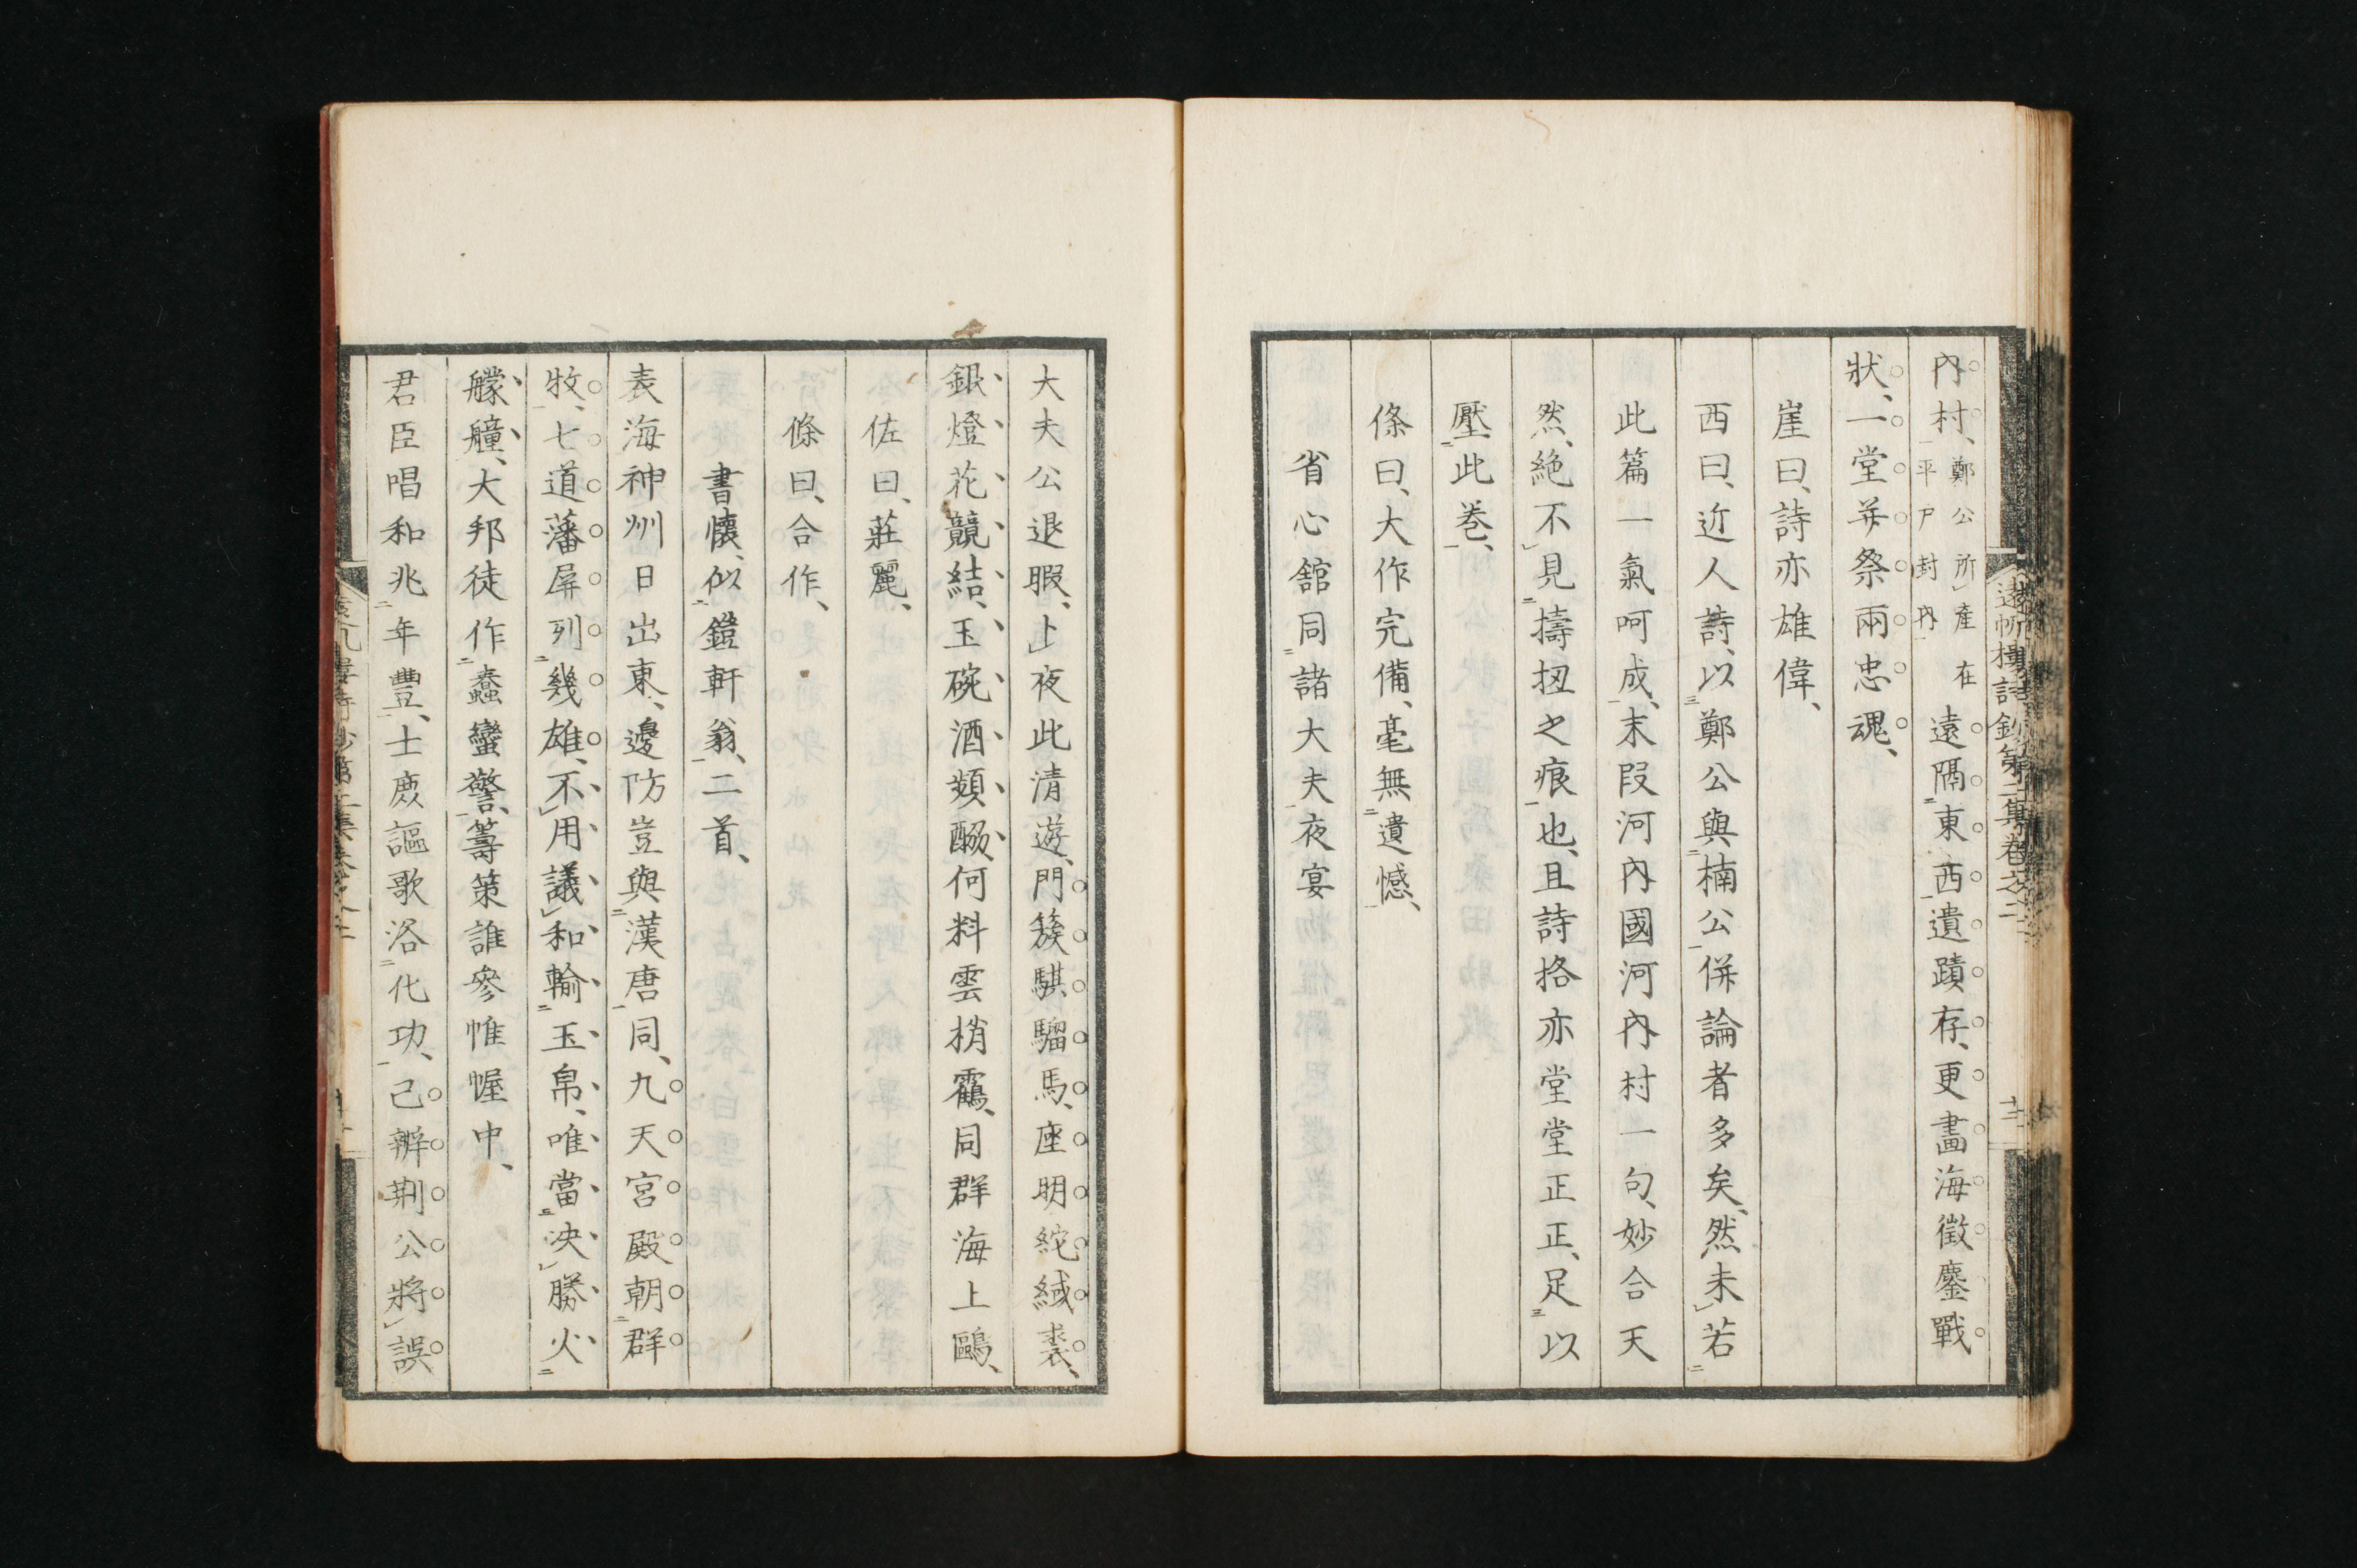 内村、鄭公所產在平戶封内遠隔東西遺蹟存、更畵海徵鏖戰
狀、一堂并祭兩忠魂、
崖曰、詩亦雄偉、
西曰、近人詩、以鄭公與楠公併論者多矣、然未若
此篇一氣呵成、末段河内國河内村一句、妙合天
然、絶不見擣扭之痕也、且詩格亦堂堂正正、足以
壓此卷、
條曰、大作完備、毫無遺憾、
省心舘同諸大夫夜宴
大夫公退暇、卜夜此清遊、門簇騏騮馬、座明紽緎裘、
銀燈花競結、玉碗酒頻酬、何料雲梢鶴、同群海上鷗、
佐曰、莊麗、
條曰、合作、
書懷、似鐙軒翁、二首、
表海神州日出東、邊防豈與漢唐同、九天宮殿朝群
牧、七道藩屏列幾雄、不用議和輸玉帛、唯當决勝火
艨艟、大邦徒作蠢蠻警、籌策誰參帷幄中、
君臣唱和兆年豐、士庶謳歌浴化功、己辨荆公將誤